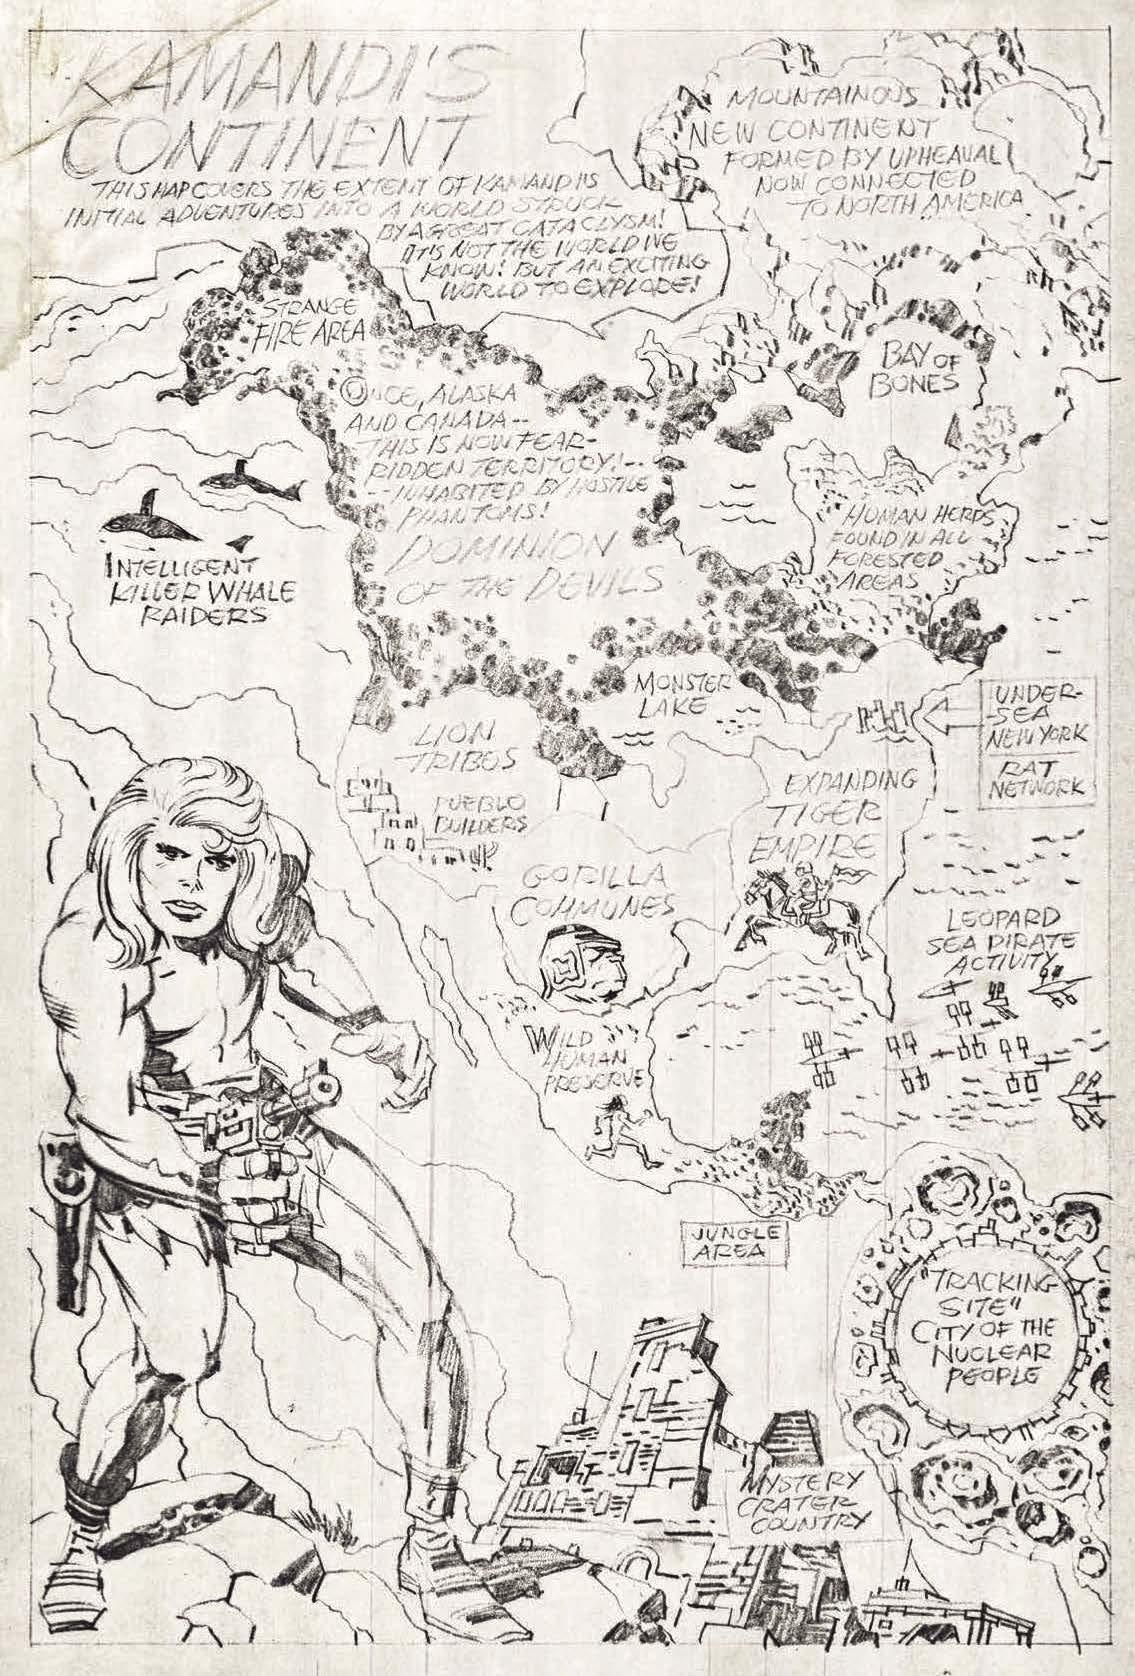 KAMANDI'S
CONTINENT
THIS MAP COVERS THE EXTENT OF KAMANDI'S
INITIAL ADVENTURES INTO A WORLD STRUCK
BY A GREAT CATACLYSM!
IT IS NOT THE WORLD WE
KNOW! BUT AN EXCITING
WORLD TO EXPLORE!
MOUNTAINOUS
NEW CONTINENT
FORMED BY UPHEAVAL
NOW CONNECTED
TO NORTH AMERICA
STRANGE
FIRE AREA
BAY OF
BONES
ONCE, ALASKA
AND CANADA--
THIS IS NOW FEAR-
RIDDEN TERRITORY!--
--INHABITED BY HOSTILE
PHANTOMS!
DOMINION
OF THE DEVILS
HUMAN HERDS
FOUND IN ALL
FORESTED
AREAS
INTELLIGENT
KILLER WHALE
RAIDERS
MONSTER
LAKE
UNDER-
-SEA
NEW YORK
RAT
NETWORK
LION
TRIBES
PUEBLO
BUILDERS
EXPANDING
TIGER
EMPIRE
GORILLA
COMMUNES
LEOPARD
SEA PIRATE
ACTIVITY
WILD
HUMAN
PRESERVE
JUNGLE
AREA
"TRACKING
SITE"
CITY OF THE
NUCLEAR
PEOPLE
MYSTERY
CRATER
COUNTRY